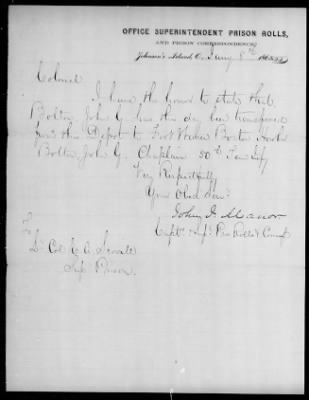 OFFICE SUPERINTENDENT PRISON ROLLS,
AND PRISON CORRESPONDENCE,
Johnson's Island, O., Jany 8th 186
Colonel
I have the honor to state that
Bolton, John G. has this day been transferred
from this Depot to Fort Warren Boston Harbor
Bolton, John G. Chaplain 50th Tenn Infy
Very Respectfully
Your Obed. Serv.
John J. Manor
Capt. & Supt. Pris Rolls & Corresp
To
Lt Col E. A. Scovill
Supt Prison.